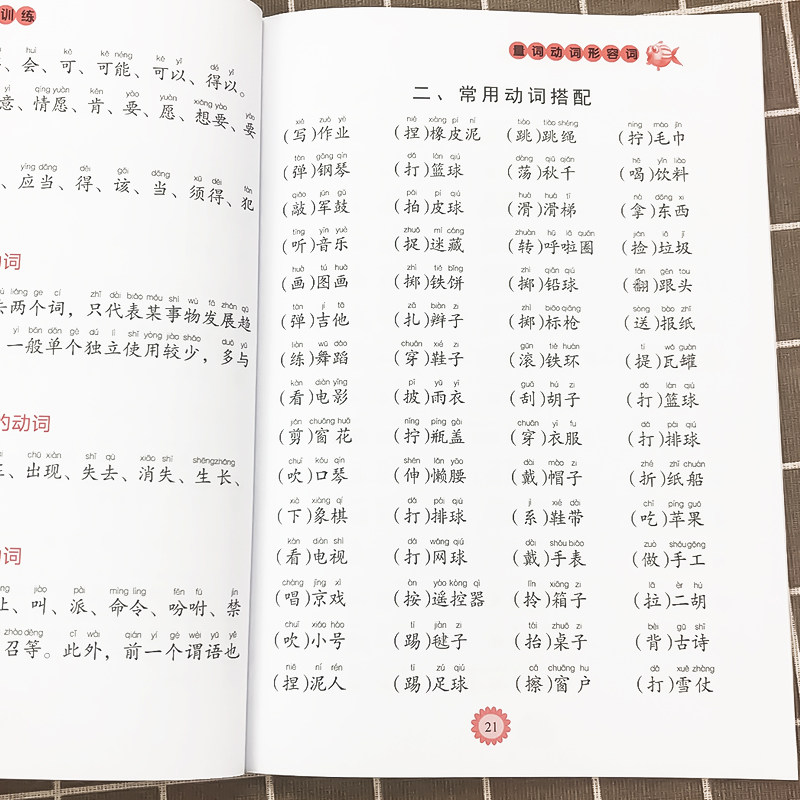 训练
huì kě kě néng kě yǐ dé yǐ
、会、可、可能、可以、得以。
yì qíng yuàn kěn yào yuàn xiǎng yào yào
意、情愿、肯、要、愿、想要、要
yīng dāng děi gāi dāng xū děi fàn
、应当、得、该、当、须得、犯
动词
liǎng gè cí zhǐ dài biǎo mǒu shì wù fā zhǎn qū
去两个词，只代表某事物发展趋
yì bān dān gè dú lì shǐ yòng jiào shǎo duō yǔ
一般单个独立使用较少，多与
的动词
chū xiàn shī qù xiāo shī shēngzhǎng
、出现、失去、消失、生长、
动词
jiào pài mìng lìng fēn fù jìn
让、叫、派、命令、吩咐、禁
zhāo děng cǐ wài qián yí gè wèi yǔ yě
召等。此外，前一个谓语也
量词动词形容词
二、常用动词搭配
xiě zuò yè niē xiàng pí ní tiào tiào shéng nǐng máo jīn
(写)作业 (捏)橡皮泥 (跳)跳绳 (拧)毛巾
tán gāng qín dǎ lán qiú dàng qiū qiān hē yǐn liào
(弹)钢琴 (打)篮球 (荡)秋千 (喝)饮料
qiāo jūn gǔ pāi pí qiú huá huá tī ná dōng xi
(敲)军鼓 (拍)皮球 (滑)滑梯 (拿)东西
tīng yīn yuè zhuō mí cáng zhuàn hū lā quān jiǎn lā jī
(听)音乐 (捉)迷藏 (转)呼啦圈 (捡)垃圾
huà tú huà zhì tiě bǐng zhì qiān qiú fān gēn tou
(画)图画 (掷)铁饼 (掷)铅球 (翻)跟头
tán jí tā zā biàn zi zhì biāo qiāng sòng bào zhǐ
(弹)吉他 (扎)辫子 (掷)标枪 (送)报纸
liàn wǔ dǎo chuān xié zi gǔn tiě huán tí wǎ guàn
(练)舞蹈 (穿)鞋子 (滚)铁环 (提)瓦罐
kàn diàn yǐng pī yǔ yī guā hú zi dǎ lán qiú
(看)电影 (披)雨衣 (刮)胡子 (打)篮球
jiǎn chuāng huā nǐng píng gài chuān yī fu dǎ pái qiú
(剪)窗花 (拧)瓶盖 (穿)衣服 (打)排球
chuī kǒu qín shēn lǎn yāo dài mào zi zhé zhǐ chuán
(吹)口琴 (伸)懒腰 (戴)帽子 (折)纸船
xià xiàng qí dǎ pái qiú jì xié dài chī píng guǒ
(下)象棋 (打)排球 (系)鞋带 (吃)苹果
kàn diàn shì dǎ wǎng qiú dài shǒu biǎo zuò shǒu gōng
(看)电视 (打)网球 (戴)手表 (做)手工
chàng jīng xì àn yáo kòng qì līn xiāng zi lā èr hú
(唱)京戏 (按)遥控器 (拎)箱子 (拉)二胡
chuī xiǎo hào tī jiàn zi tái zhuō zi bèi gǔ shī
(吹)小号 (踢)毽子 (抬)桌子 (背)古诗
niē ní rén tī zú qiú cā chuāng hu dǎ xuě zhàng
(捏)泥人 (踢)足球 (擦)窗户 (打)雪仗
21